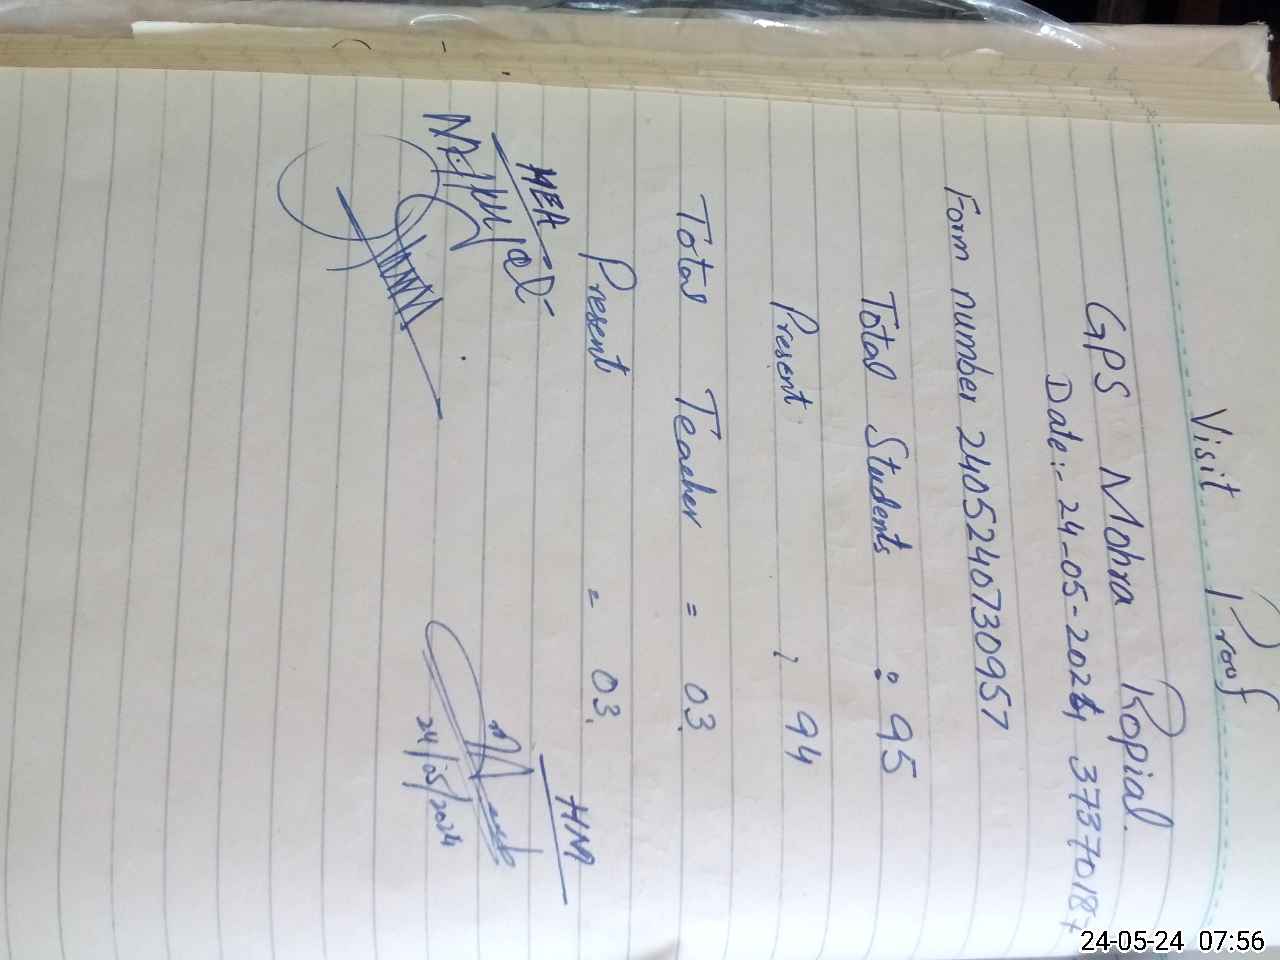 Visit Proof
GPS Mohra Ropial.
Date:- 24-05-2024 37370187
Form number 2405240730957
Total Students : 95
Present : 94
Total Teacher = 03
Present = 03.
MEA
HM
24/05/2024
24-05-24 07:56